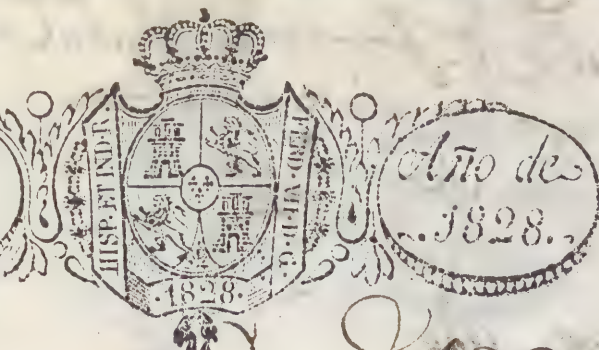 HISP. ET IND. R.
FERD. VII. D. G.
1828
Año de
1828.